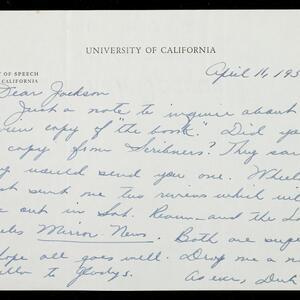 UNIVERSITY OF CALIFORNIA
T OF SPEECH
April 16, 195
Dear Jackson
Just a note to inquire about
copy of "the book". Did yo
copy from Scribners? They sa
would send you one. Wheel
sent me two reviews which wil
out in Sat. Review and the Lo
les Mirror-News. Both are sup
ope all goes well. Drop me a n
As ever, Dick